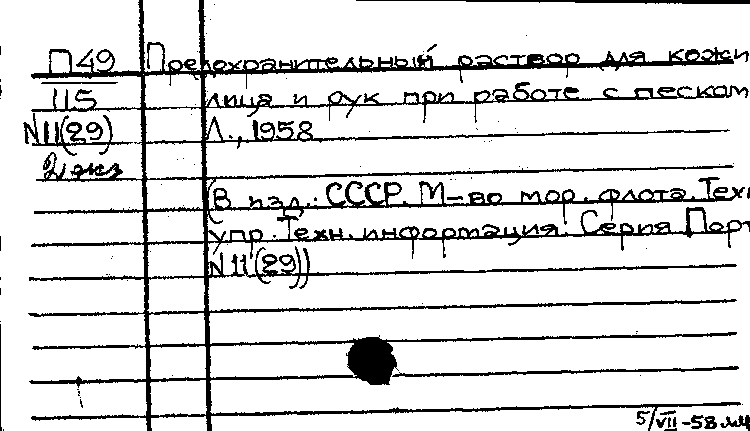 П49 Предохранительный раствор для кожи
115 лица и рук при работе с песком
N11(29) Л., 1958
2 экз
(В изд.: СССР. М-во мор. флота. Техн
упр. Техн. информация. Серия Порт
N11(29))
5/VII-58